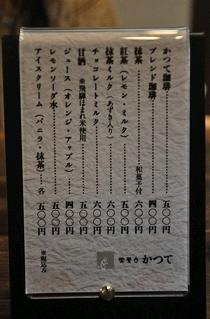 かつて珈琲 五〇〇円
ブレンド珈琲 四〇〇円
抹茶 和菓子付 六〇〇円
紅茶（レモン・ミルク） 五〇〇円
抹茶ミルク（あずき入り） 六〇〇円
チョコレートミルク 六〇〇円
甘酒 ※飛騨はまれ米使用 五〇〇円
ジュース（オレンジ・アップル） 四〇〇円
レモンソーダ水 五〇〇円
アイスクリーム（バニラ・抹茶） 各 五〇〇円
※税込み
かつて